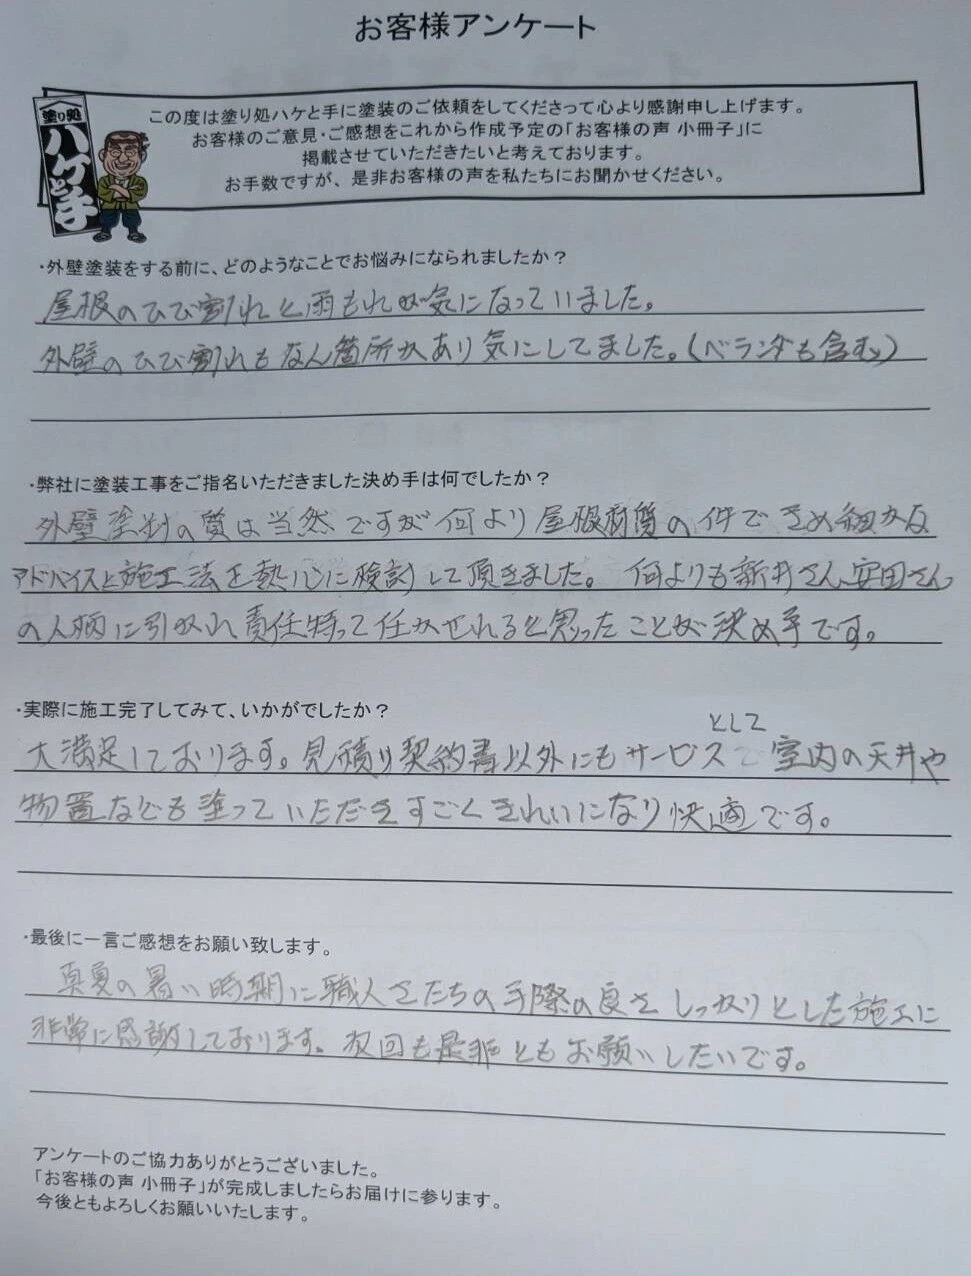 お客様アンケート
塗り処
ハケと手
この度は塗り処ハケと手に塗装のご依頼をしてくださって心より感謝申し上げます。
お客様のご意見・ご感想をこれから作成予定の「お客様の声 小冊子」に
掲載させていただきたいと考えております。
お手数ですが、是非お客様の声を私たちにお聞かせください。
・外壁塗装をする前に、どのようなことでお悩みになられましたか？
屋根のひび割れと雨もれが気になっていました。
外壁のひび割れもなん箇所かあり気にしてました。(ベランダも含む)
・弊社に塗装工事をご指名いただきました決め手は何でしたか？
外壁塗料の質は当然ですが何より屋根材質の件できめ細かな
アドバイスと施工法を熱心に検討して頂きました。何よりも新井さん、安田さん
の人柄に引かれ責任持って任かせれると思ったことが決め手です。
・実際に施工完了してみて、いかがでしたか？
として
大満足しております。見積り契約書以外にもサービスで室内の天井や
物置なども塗っていただきすごくきれいになり快適です。
・最後に一言ご感想をお願い致します。
真夏の暑い時期に職人さたちの手際の良さしっかりとした施工に
非常に感謝しております。次回も是非ともお願いしたいです。
アンケートのご協力ありがとうございました。
「お客様の声 小冊子」が完成しましたらお届けに参ります。
今後ともよろしくお願いいたします。